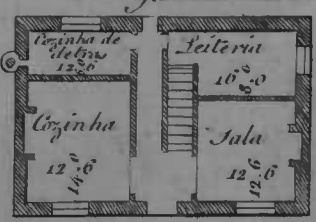 Cozinha de
detras
12.6
6.0
Leiteria
16.0
8.0
Cozinha
12.6
14.0
Sala
12.6
12.6